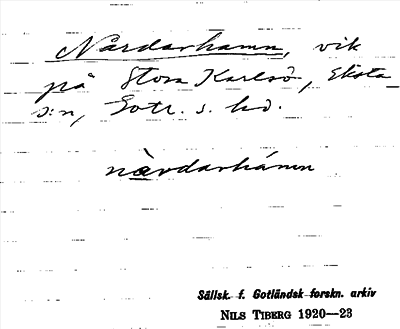 Nårdarhamn, vik
på Stora Karlsö, Eksta
s:n, Gotl. s. hd.
nàrdarhámn
Sällsk. f. Gotländsk forskn. arkiv
NILS TIBERG 1920—23